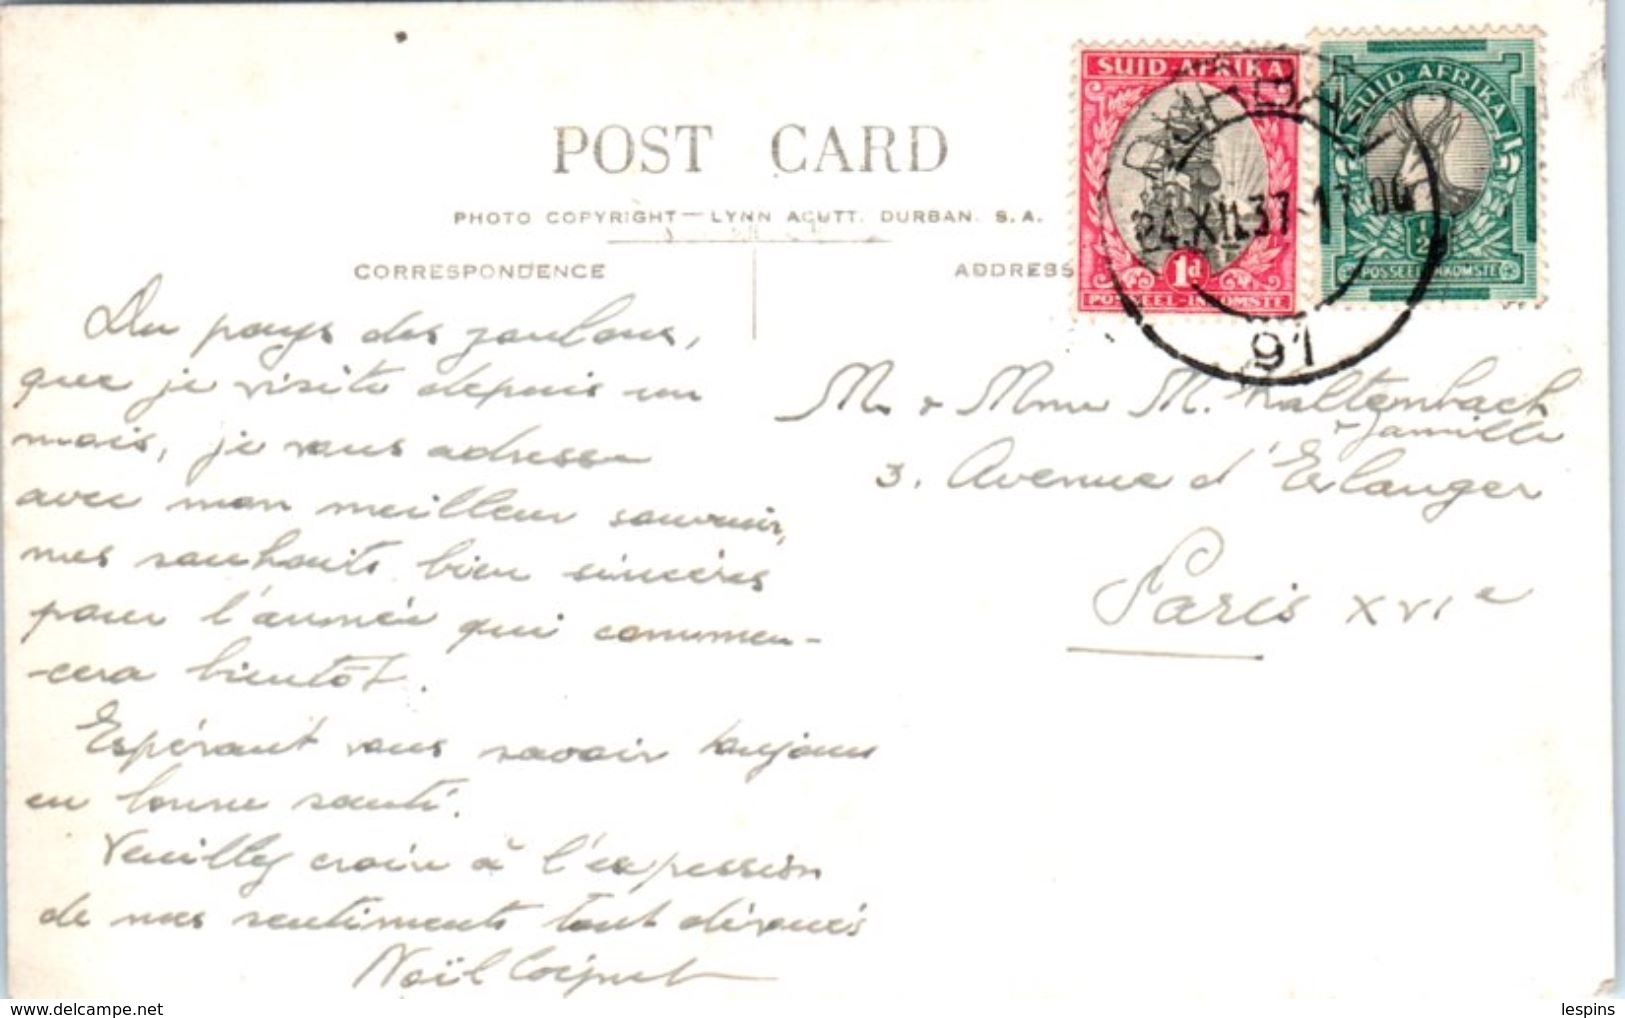 POST CARD
PHOTO COPYRIGHT — LYNN ACUTT. DURBAN. S.A.
CORRESPONDENCE
ADDRESS
SUID-AFRIKA
1d
POSSEEL-INKOMSTE
SUID-AFRIKA
1/2 D
POSSEEL-INKOMSTE
DURBAN
24 XII 37 - 17 00
91
Du pays des zoulous,
que je visite depuis un
mois, je vous adresse
avec mon meilleur souvenir,
mes souhaits bien sincères
pour l'année qui commen-
-cera bientôt.
Espérant vous savoir toujours
en bonne santé.
Veuillez croire à l'expression
de mes sentiments tout dévoués
Noël
M. & Mme M. Kaltenbach
& famille
3. Avenue d'Erlanger
Paris XVIe
lespins
www.delcampe.net